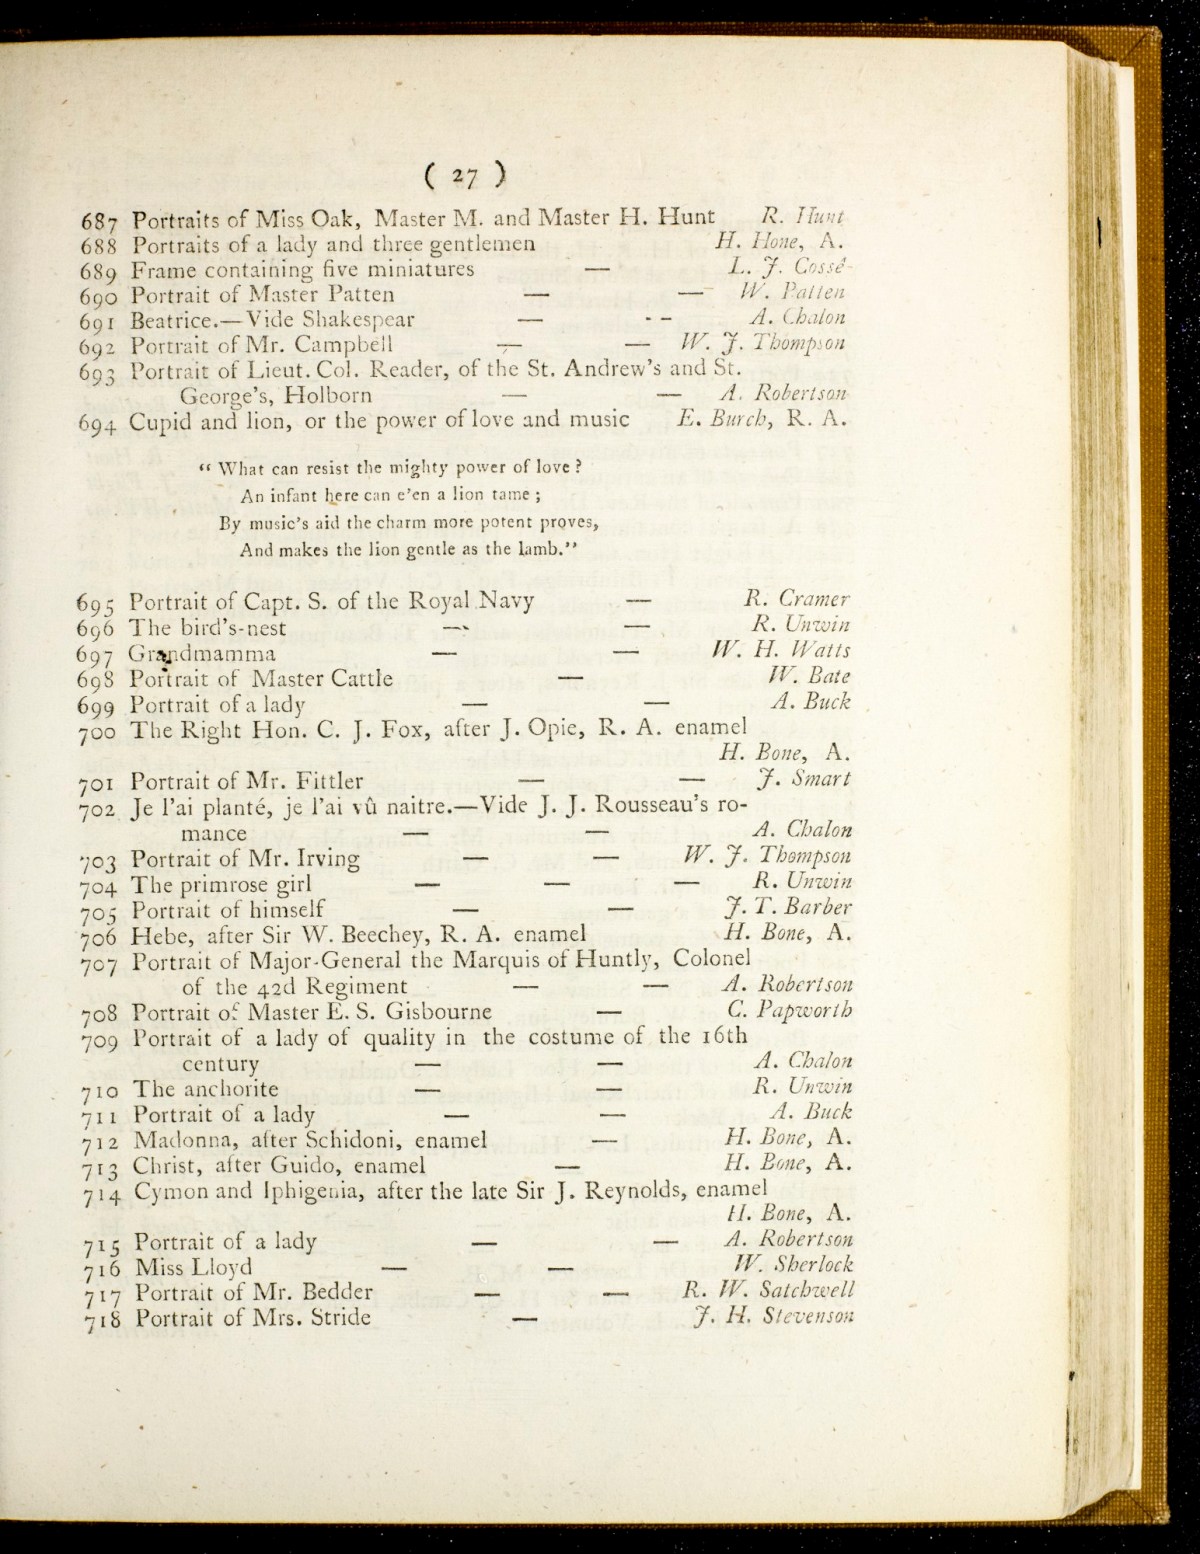 ( 27 )
687 Portraits of Miss Oak, Master M. and Master H. Hunt R. Hunt
688 Portraits of a lady and three gentlemen H. Hone, A.
689 Frame containing five miniatures — L. J. Cossé
690 Portrait of Master Patten — — W. Patten
691 Beatrice.—Vide Shakespear — -- A. Chalon
692 Portrait of Mr. Campbell — — W. J. Thompson
693 Portrait of Lieut. Col. Reader, of the St. Andrew's and St.
George's, Holborn — — A. Robertson
694 Cupid and lion, or the power of love and music E. Burch, R. A.
“ What can resist the mighty power of love ?
An infant here can e'en a lion tame ;
By music's aid the charm more potent proves,
And makes the lion gentle as the lamb.”
695 Portrait of Capt. S. of the Royal Navy — R. Cramer
696 The bird's-nest — — R. Unwin
697 Grandmamma — — W. H. Watts
698 Portrait of Master Cattle — W. Bate
699 Portrait of a lady — — A. Buck
700 The Right Hon. C. J. Fox, after J. Opie, R. A. enamel
H. Bone, A.
701 Portrait of Mr. Fittler — — J. Smart
702 Je l'ai planté, je l'ai vû naitre.—Vide J. J. Rousseau's ro-
mance — — A. Chalon
703 Portrait of Mr. Irving — — W. J. Thompson
704 The primrose girl — — — R. Unwin
705 Portrait of himself — — J. T. Barber
706 Hebe, after Sir W. Beechey, R. A. enamel H. Bone, A.
707 Portrait of Major-General the Marquis of Huntly, Colonel
of the 42d Regiment — — A. Robertson
708 Portrait of Master E. S. Gisbourne — C. Papworth
709 Portrait of a lady of quality in the costume of the 16th
century — — A. Chalon
710 The anchorite — — R. Unwin
711 Portrait of a lady — — A. Buck
712 Madonna, after Schidoni, enamel — H. Bone, A.
713 Christ, after Guido, enamel — H. Bone, A.
714 Cymon and Iphigenia, after the late Sir J. Reynolds, enamel
H. Bone, A.
715 Portrait of a lady — — A. Robertson
716 Miss Lloyd — — W. Sherlock
717 Portrait of Mr. Bedder — — R. W. Satchwell
718 Portrait of Mrs. Stride — J. H. Stevenson